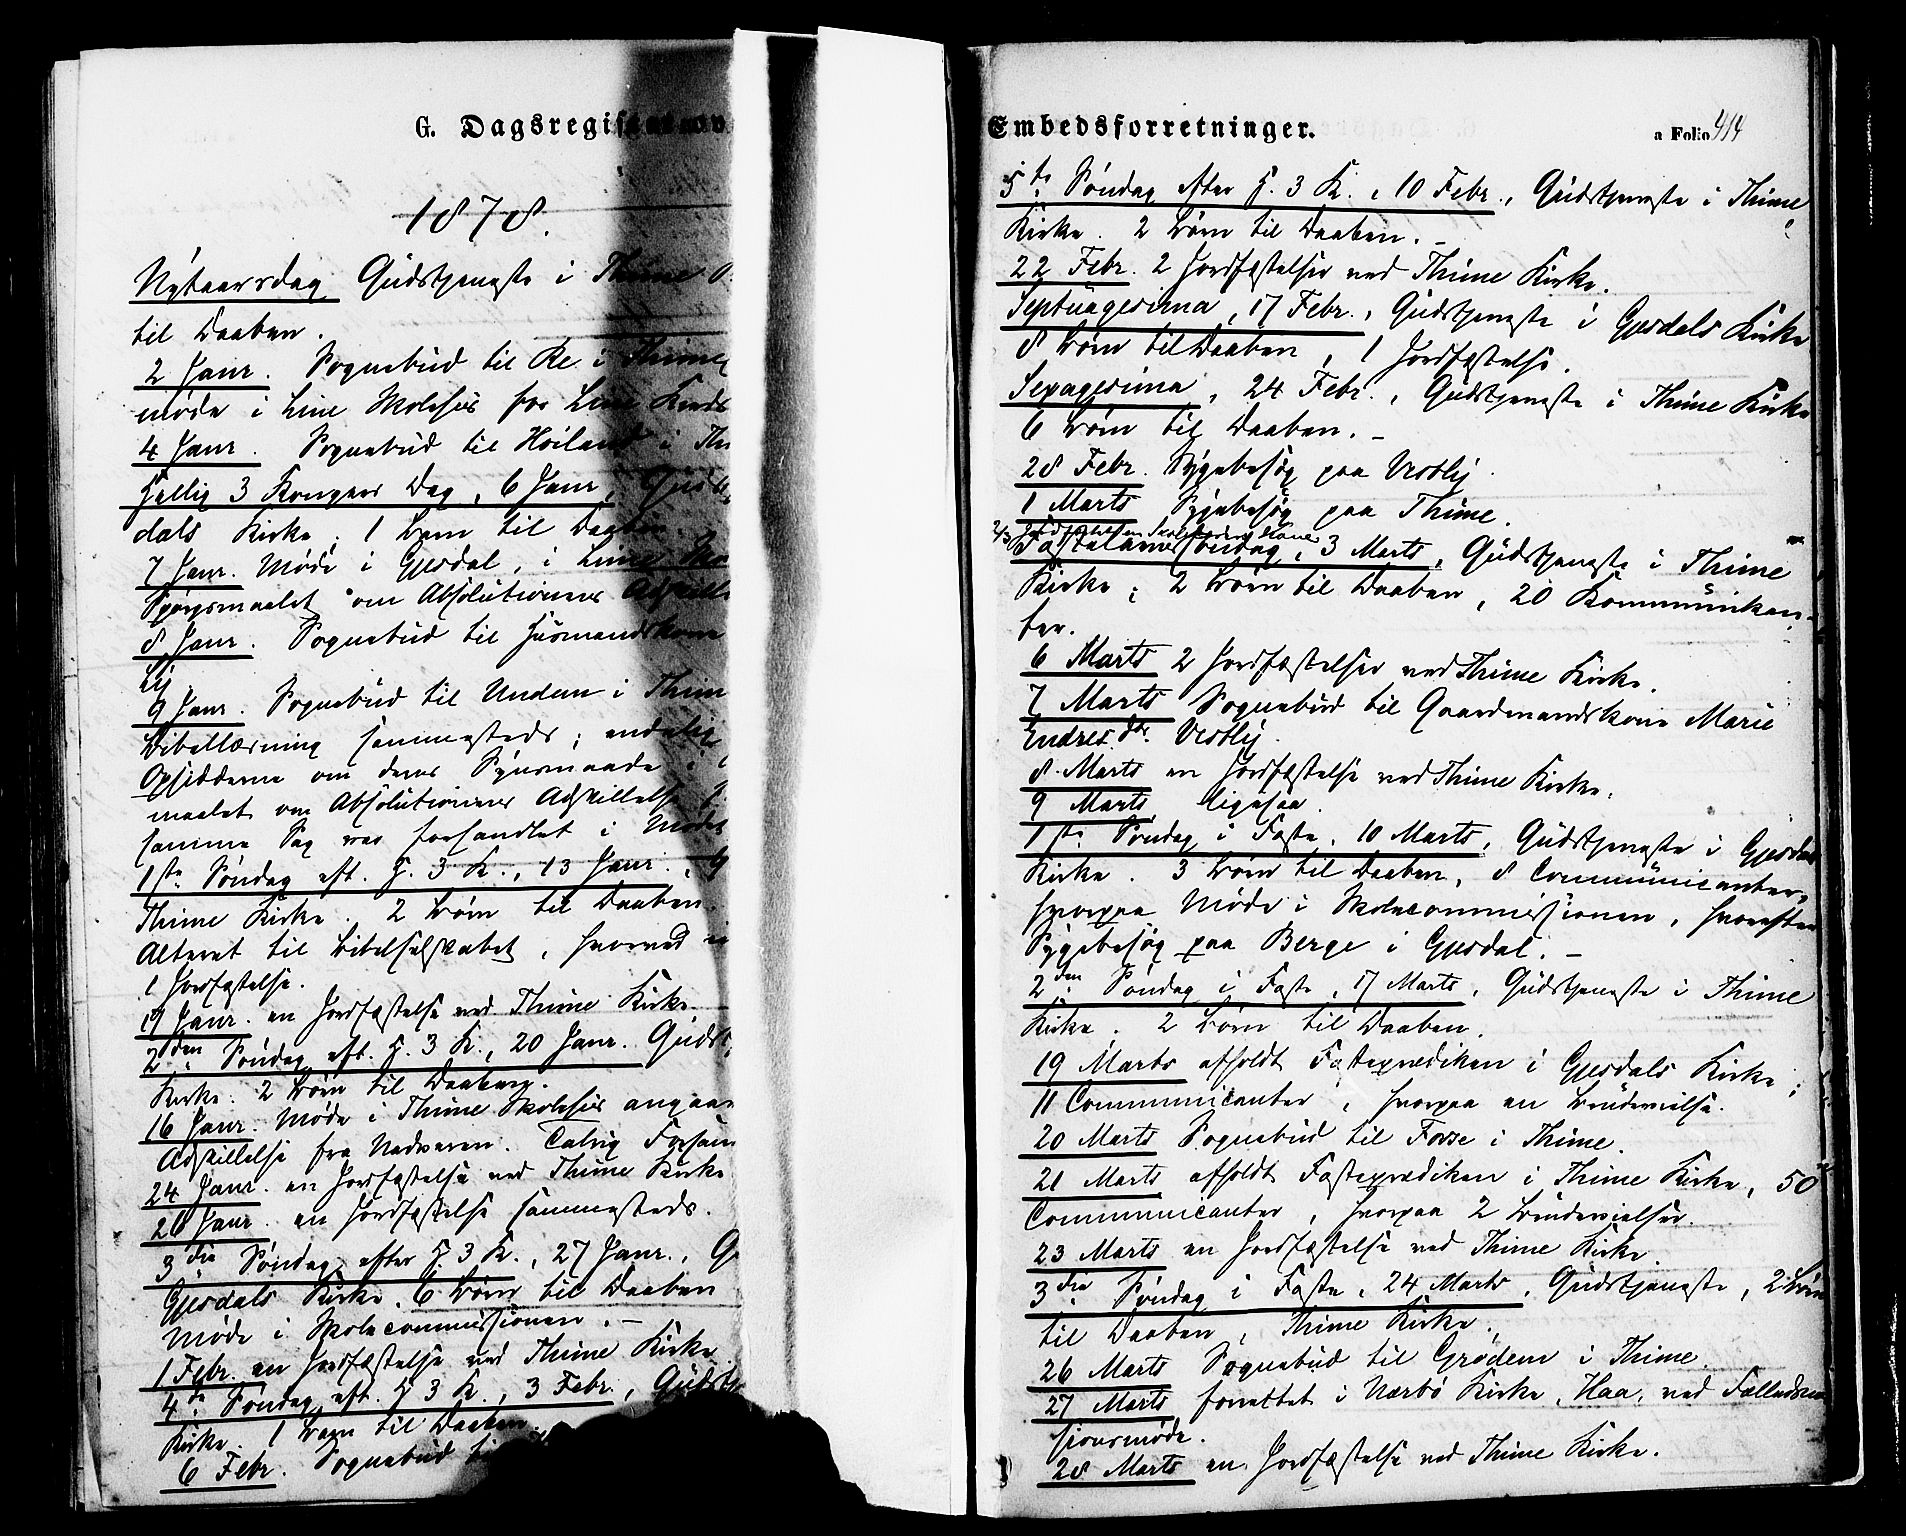 G. Dagsregis
1878.
Nytaarsdag Gudstjeneste i Thime
til Daaben.
2 Janr. Sognebud til Re i Thime,
møde i Line Skolehus for Line Kreds
4 Janr. Sognebud til Høiland i Thi
Hellig 3 Kongers Dag, 6 Janr, Guds
dals Kirke, 1 Barn til Daaben
7 Janr. Møde i Gjesdal, i Lime
Spørgsmaalet om Absolutionens Adskille
8 Janr. Sognebud til Husmandskone
Lij
9 Janr. Sognebud til Undem i Thim
Bibellæsning sammesteds; endelig
Opsidderne om deres Synsmaade i
maalet om Absolutionens Adskillelse
samme Sag var forhandlet i Mødet
1ste Søndag eft. H. 3 K., 13 Janr.
Thime Kirke. 2 Børn til Daaben.
Alteret til Bibelselskabet, hvorved
1 Jordfæstelse.
19 Janr. en Jordfæstelse ved Thime Kirke.
2den Søndag eft. H. 3 K., 20 Janr. Guds
Kirke. 2 Børn til Daaben.
16 Janr. Møde i Thime Skolehus angaa
Adskillelse fra Nadveren. Talrig Forsam
24 Janr. en Jordfæstelse ved Thime Kirke
26 Janr. en Jordfæstelse sammesteds.
3die Søndag efter H. 3 K., 27 Janr., G
Gjesdals Kirke, 6 Børn til Daaben
Møde i Skolecommissionen. –
1 Febr. en Jordfæstelse ved Thime Kirke
4de Søndag eft. H 3 K., 3 Febr., Gudstj
Kirke. 1 Barn til Daaben.
6 Febr. Sognebud til
Embedsforretninger. a Folio 414
5te Søndag efter H. 3 K., 10 Febr., Gudstjeneste i Thime
Kirke. 2 Børn til Daaben. –
22 Febr. 2 Jordfæstelser ved Thime Kirke.
Septuagesima, 17 Febr., Gudstjeneste i Gjesdals Kirke
8 Børn til Daaben, 1 Jordfæstelse.
Sexagesima, 24 Febr., Gudstjeneste i Thime Kirke
6 Børn til Daaben. –
28 Febr. Sygebesøg paa Vestly.
1 Marts Sygebesøg paa Thime.
2/3 Jordfæstelse Kone
Fastelavns Søndag, 3 Marts, Gudstjeneste i Thime
Kirke; 2 Børn til Daaben, 20 Kommunikan-
ter.
6 Marts 2 Jordfæstelser ved Thime Kirke.
7 Marts Sognebud til Gaardmandskone Marie
Endresdtr. Vestlij.
8. Marts en Jordfæstelse ved Thime Kirke.
9 Marts ligesaa.
1ste Søndag i Faste, 10 Marts, Gudstjeneste i Gjesdal
Kirke. 3 Børn til Daaben, 8 Communicanter,
hvorpaa Møde i Skolecommissionen, hvorefter
Sygebesøg paa Berge i Gjesdal. –
2den Søndag i Faste, 17 Marts, Gudstjeneste i Thime
Kirke. 2 Børn til Daaben.
19 Marts afholdt Fasteprædiken i Gjesdals Kirke;
11 Communicanter, hvorpaa en Brudevielse.
20 Marts Sognebud til Fosse i Thime.
21 Marts afholdt Fasteprædiken i Thime Kirke, 50
Communicanter, hvorpaa 2 Brudevielser.
23 Marts en Jordfæstelse ved Thime Kirke
3die Søndag i Faste, 24 Marts, Gudstjeneste, 2 Børn
til Daaben, Thime Kirke.
26 Marts Sognebud til Grødem i Thime.
27 Marts forrettet i Nærbø Kirke, Haa, ved Fællesmis
sionsmøde.
28 Marts en Jordfæstelse ved Thime Kirke.